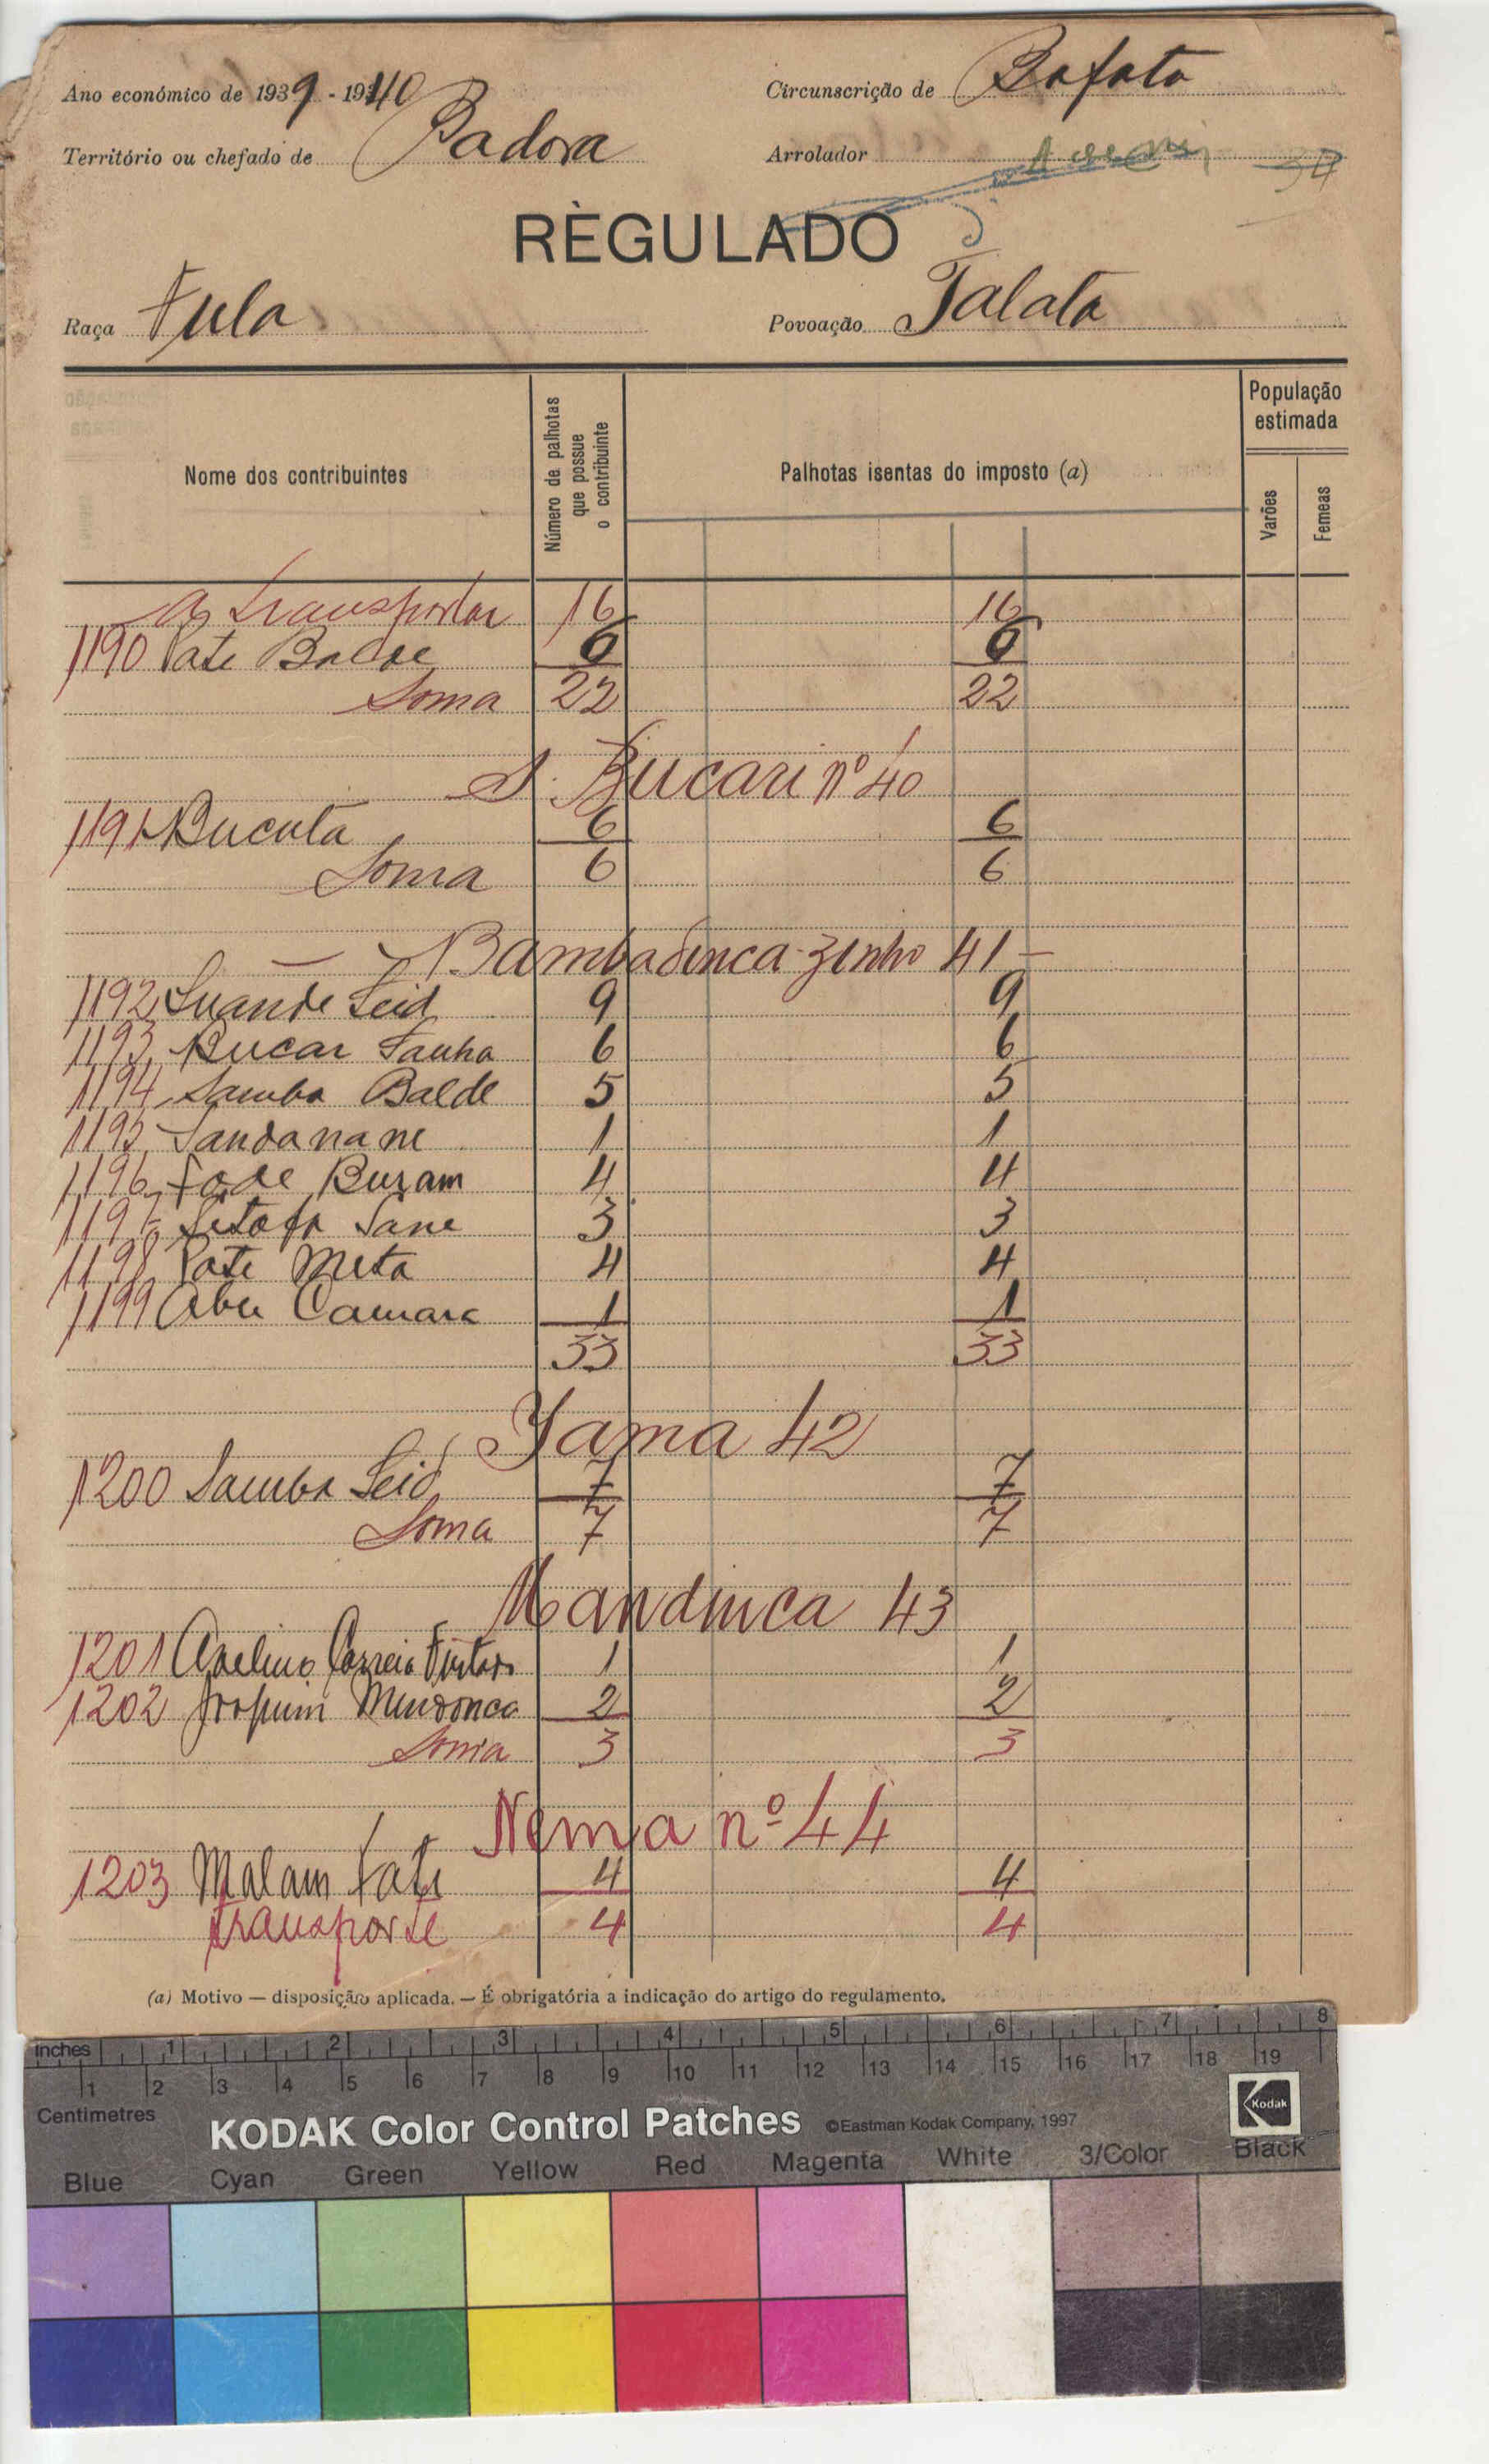 Ano económico de 1939 - 1940 Circunscrição de Bafata
Território ou chefado de Badora Arrolador
RÈGULADO
Raça Fula Povoação Talata
Nome dos contribuintes
Número de palhotas que possue o contribuinte
Palhotas isentas do imposto (a)
População estimada
Varões
Femeas
a transportar 16 16
1190 Pate Balde 6 6
Soma 22 22
S. Bucari nº 40
1191 Bucuta 6 6
Soma 6 6
Bambadinca-zinho 41
1192 Suande Seid 9 9
1193 Bucar Sanha 6 6
1194 Samba Balde 5 5
1195 Sandanane 1 1
1196 Fode Buram 4 4
1197 Sitafa Sane 3 3
1198 Pate Meta 4 4
1199 Abu Camara 1 1
33 33
Yama 42
1200 Samba Seid 7 7
Soma 7 7
Mandinca 43
1201 Avelino Correia Furtado 1 1
1202 Joaquim Mendonca 2 2
Soma 3 3
Nema nº 44
1203 Malam Fati 4 4
transporte 4 4
(a) Motivo — disposição aplicada. — É obrigatória a indicação do artigo do regulamento.
inches 1 2 3 4 5 6 7 8
1 2 3 4 5 6 7 8 9 10 11 12 13 14 15 16 17 18 19
Centimetres
KODAK Color Control Patches ©Eastman Kodak Company, 1997 Kodak
Blue Cyan Green Yellow Red Magenta White 3/Color Black